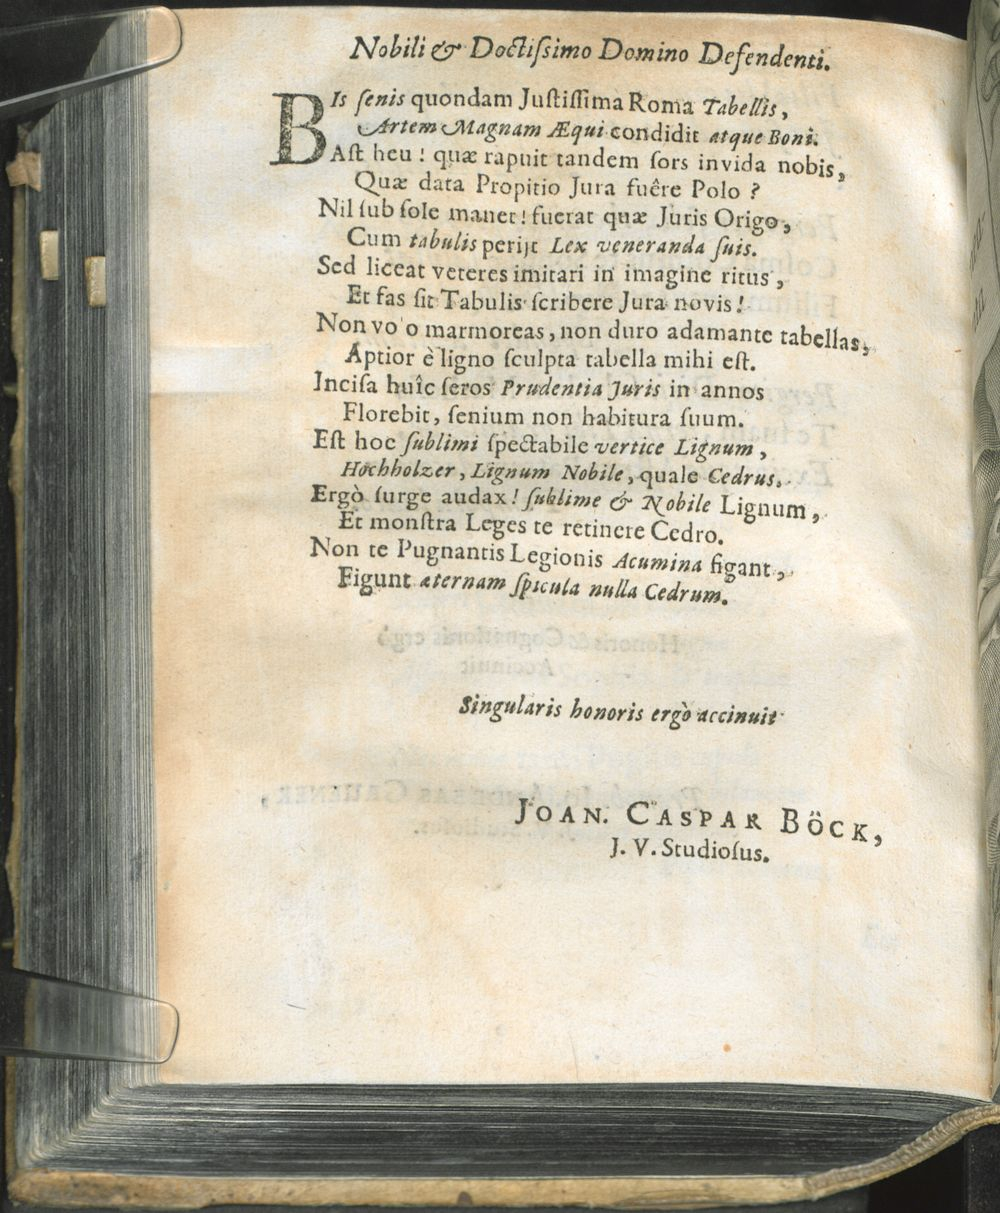 Nobili & Doctiſsimo Domino Defendenti.
BIs ſenis quondam Juſtiſſima Roma Tabellis,
Artem Magnam Æqui condidit atque Boni.
Aſt heu! quæ rapuit tandem ſors invida nobis,
Quæ data Propitio Jura fuêre Polo?
Nil ſub ſole manet! fuerat quæ Juris Origo,
Cum tabulis perijt Lex veneranda ſuis.
Sed liceat veteres imitari in imagine ritus,
Et fas ſit Tabulis ſcribere Jura novis!
Non vo o marmoreas, non duro adamante tabellas,
Aptior è ligno ſculpta tabella mihi eſt.
Inciſa huîc ſeros Prudentia Juris in annos
Florebit, ſenium non habitura ſuum.
Eſt hoc ſublimi ſpectabile vertice Lignum,
Höchholzer, Lignum Nobile, quale Cedrus.
Ergò ſurge audax! ſublime & Nobile Lignum,
Et monſtra Leges te retinere Cedro.
Non te Pugnantis Legionis Acumina figant,
Figunt æternam ſpicula nulla Cedrum.
Singularis honoris ergò accinuit
JOAN. CASPAR BÖCK,
J. V. Studioſus.